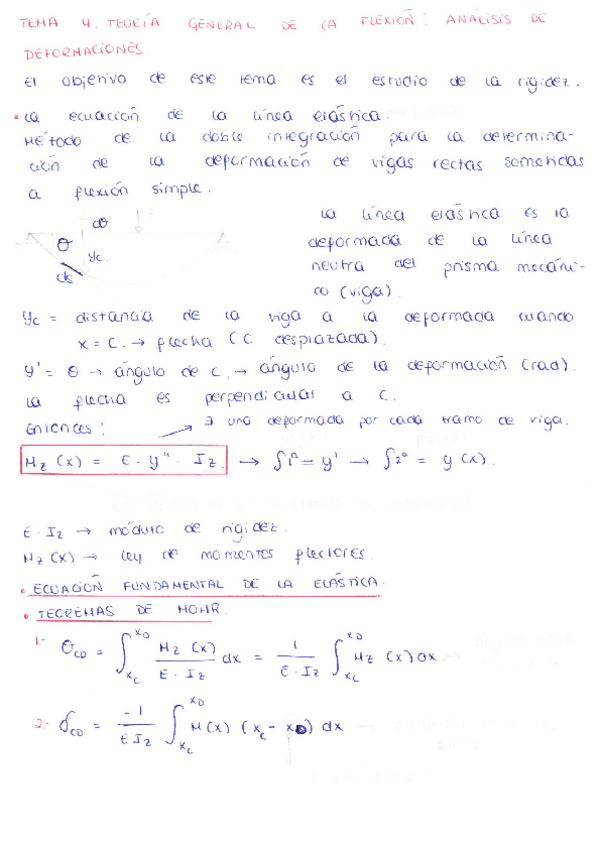 TEMA 4. TEORÍA GENERAL DE LA FLEXIÓN: ANÁLISIS DE
DEFORMACIONES.
El objetivo de este tema es el estudio de la rigidez.
• La ecuación de la línea elástica.
Método de la doble integración para la determina-
ción de la deformación de vigas rectas sometidas
a flexión simple.
dθ
θ
yc
ds
La línea elástica es la
deformada de la línea
neutra del prisma mecáni-
co (viga).
yc = distancia de la viga a la deformada cuando
x = c. → flecha (c desplazada).
y' = θ → ángulo de c. → ángulo de la deformación (rad).
La flecha es perpendicular a c.
Entonces: → ∃ una deformada por cada tramo de viga.
Mz (x) = E · y'' · Iz. → ∫1ª = y' → ∫2ª = y (x).
E · Iz → módulo de rigidez.
Mz (x) → ley de momentos flectores.
• ECUACIÓN FUNDAMENTAL DE LA ELÁSTICA.
• TEOREMAS DE MOHR.
1.- θCD = ∫_{xC}^{xD} Mz (x) / E · Iz dx = 1 / E · Iz ∫_{xC}^{xD} Mz (x) dx.
2.- δCD = -1 / E Iz ∫_{xC}^{xD} M(x) (xC - xD) dx